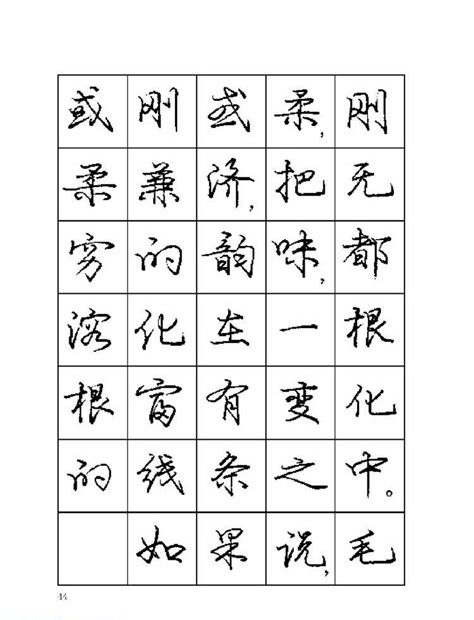 或刚或柔，刚
柔兼济，把无
穷的韵味，都
溶化在一根
根富有变化
的线条之中。
如果说，毛
44